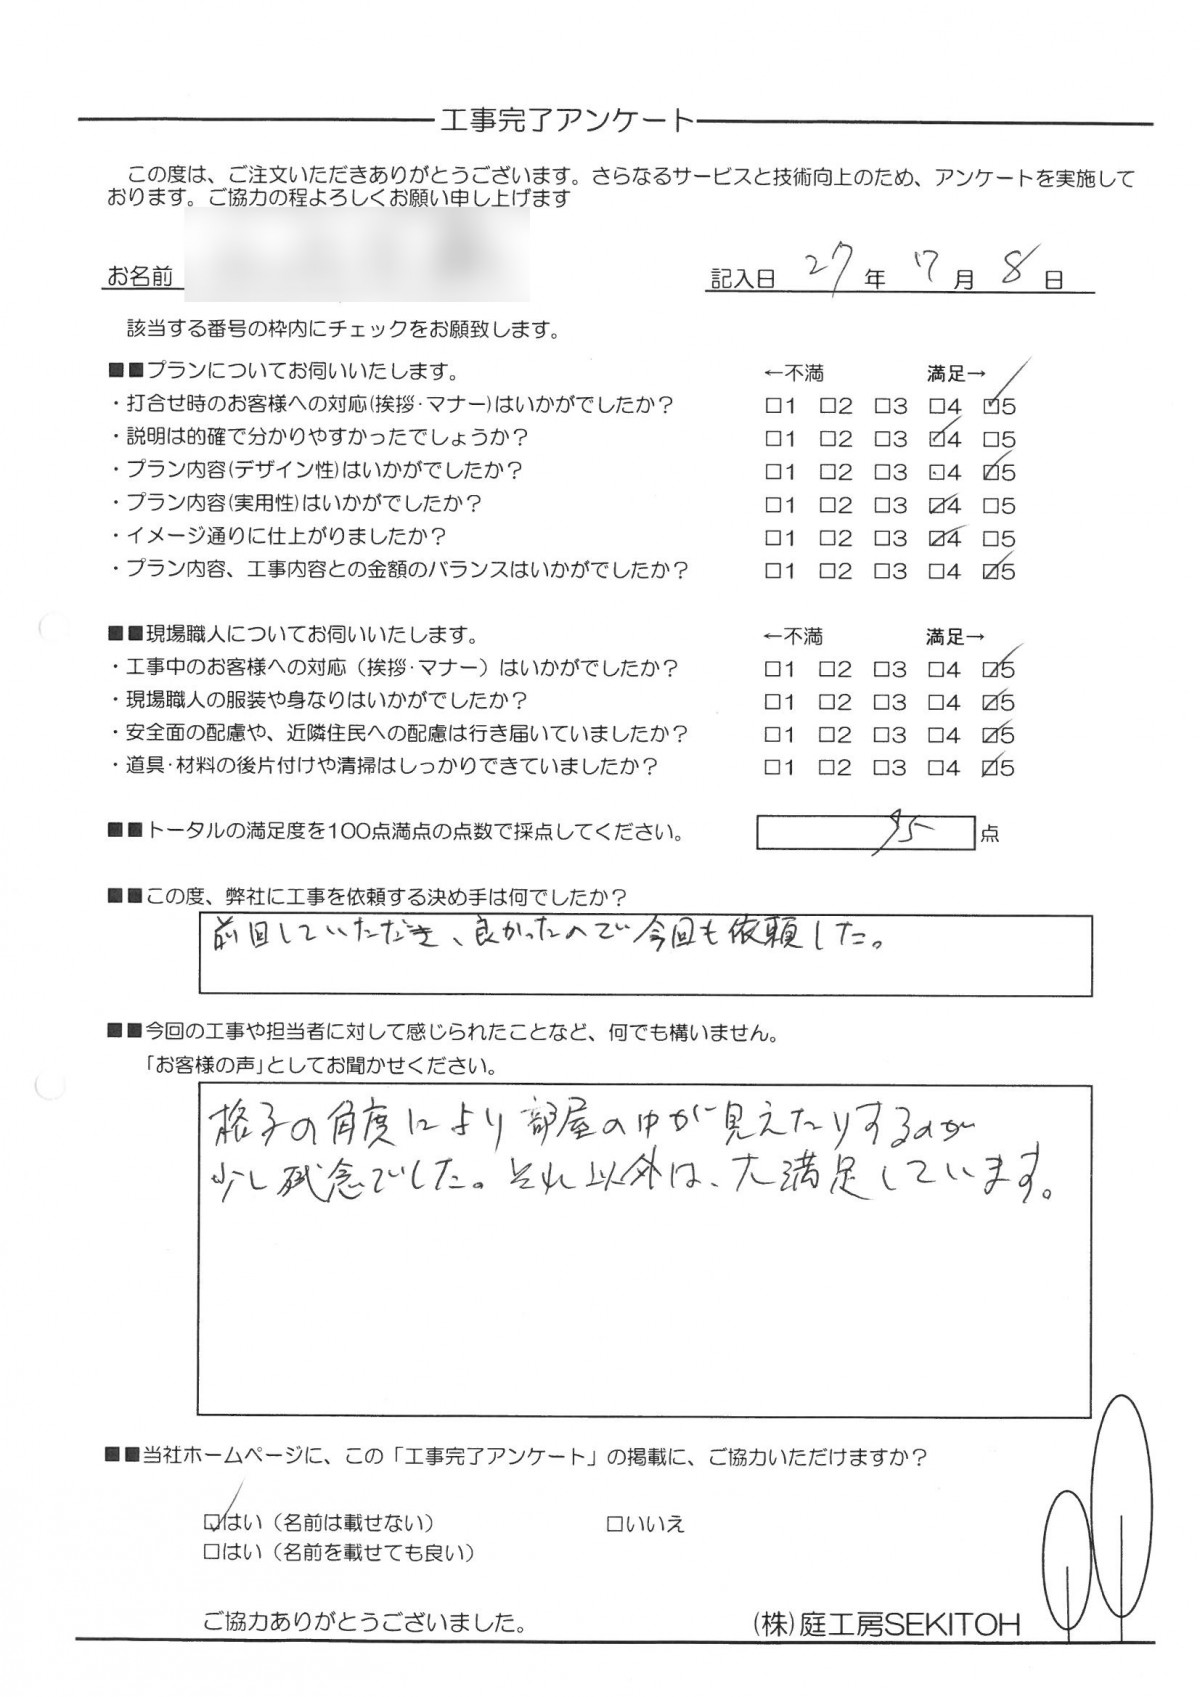 工事完了アンケート
この度は、ご注文いただきありがとうございます。さらなるサービスと技術向上のため、アンケートを実施して
おります。ご協力の程よろしくお願い申し上げます
お名前 記入日 27年 7月 8日
該当する番号の枠内にチェックをお願致します。
■■プランについてお伺いいたします。 ←不満 満足→
・打合せ時のお客様への対応(挨拶・マナー)はいかがでしたか? □1 □2 □3 □4 ☑5
・説明は的確で分かりやすかったでしょうか? □1 □2 □3 ☑4 □5
・プラン内容(デザイン性)はいかがでしたか? □1 □2 □3 □4 ☑5
・プラン内容(実用性)はいかがでしたか? □1 □2 □3 ☑4 □5
・イメージ通りに仕上がりましたか? □1 □2 □3 ☑4 □5
・プラン内容、工事内容との金額のバランスはいかがでしたか? □1 □2 □3 □4 ☑5
■■現場職人についてお伺いいたします。 ←不満 満足→
・工事中のお客様への対応（挨拶・マナー）はいかがでしたか? □1 □2 □3 □4 ☑5
・現場職人の服装や身なりはいかがでしたか? □1 □2 □3 □4 ☑5
・安全面の配慮や、近隣住民への配慮は行き届いていましたか? □1 □2 □3 □4 ☑5
・道具・材料の後片付けや清掃はしっかりできていましたか? □1 □2 □3 □4 ☑5
■■トータルの満足度を100点満点の点数で採点してください。 95 点
■■この度、弊社に工事を依頼する決め手は何でしたか?
前回していただき、良かったので今回も依頼した。
■■今回の工事や担当者に対して感じられたことなど、何でも構いません。
「お客様の声」としてお聞かせください。
格子の角度により部屋の中が見えたりするのが
少し残念でした。それ以外は、大満足しています。
■■当社ホームページに、この「工事完了アンケート」の掲載に、ご協力いただけますか?
☑はい（名前は載せない） □いいえ
□はい（名前を載せても良い）
ご協力ありがとうございました。 (株)庭工房SEKITOH